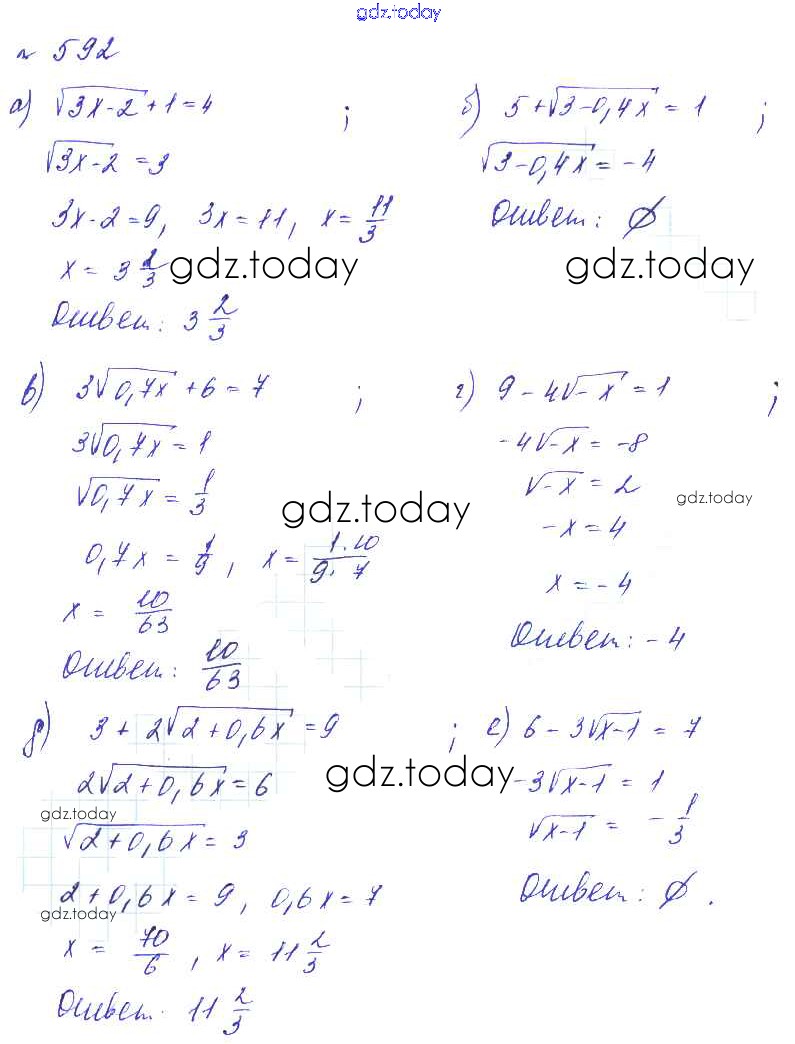 gdz.today
№ 592
а) √3x-2 + 1 = 4 ;
√3x-2 = 3
3x-2 = 9, 3x = 11, x = 11/3
x = 3 2/3 gdz.today
Ответ: 3 2/3
б) 5 + √3-0,4x = 1 ;
√3-0,4x = -4
Ответ: ∅
gdz.today
в) 3√0,7x + 6 = 7 ;
3√0,7x = 1
√0,7x = 1/3
gdz.today
0,7x = 1/9, x = 1·10/9·7
x = 10/63
Ответ: 10/63
г) 9 - 4√-x = 1 ;
-4√-x = -8
√-x = 2
gdz.today
-x = 4
x = -4
Ответ: -4
д) 3 + 2√2+0,6x = 9 ;
2√2+0,6x = 6
gdz.today
gdz.today
√2+0,6x = 3
2+0,6x = 9, 0,6x = 7
gdz.today
x = 70/6, x = 11 2/3
Ответ. 11 2/3
е) 6 - 3√x-1 = 7
-3√x-1 = 1
√x-1 = -1/3
Ответ: ∅.